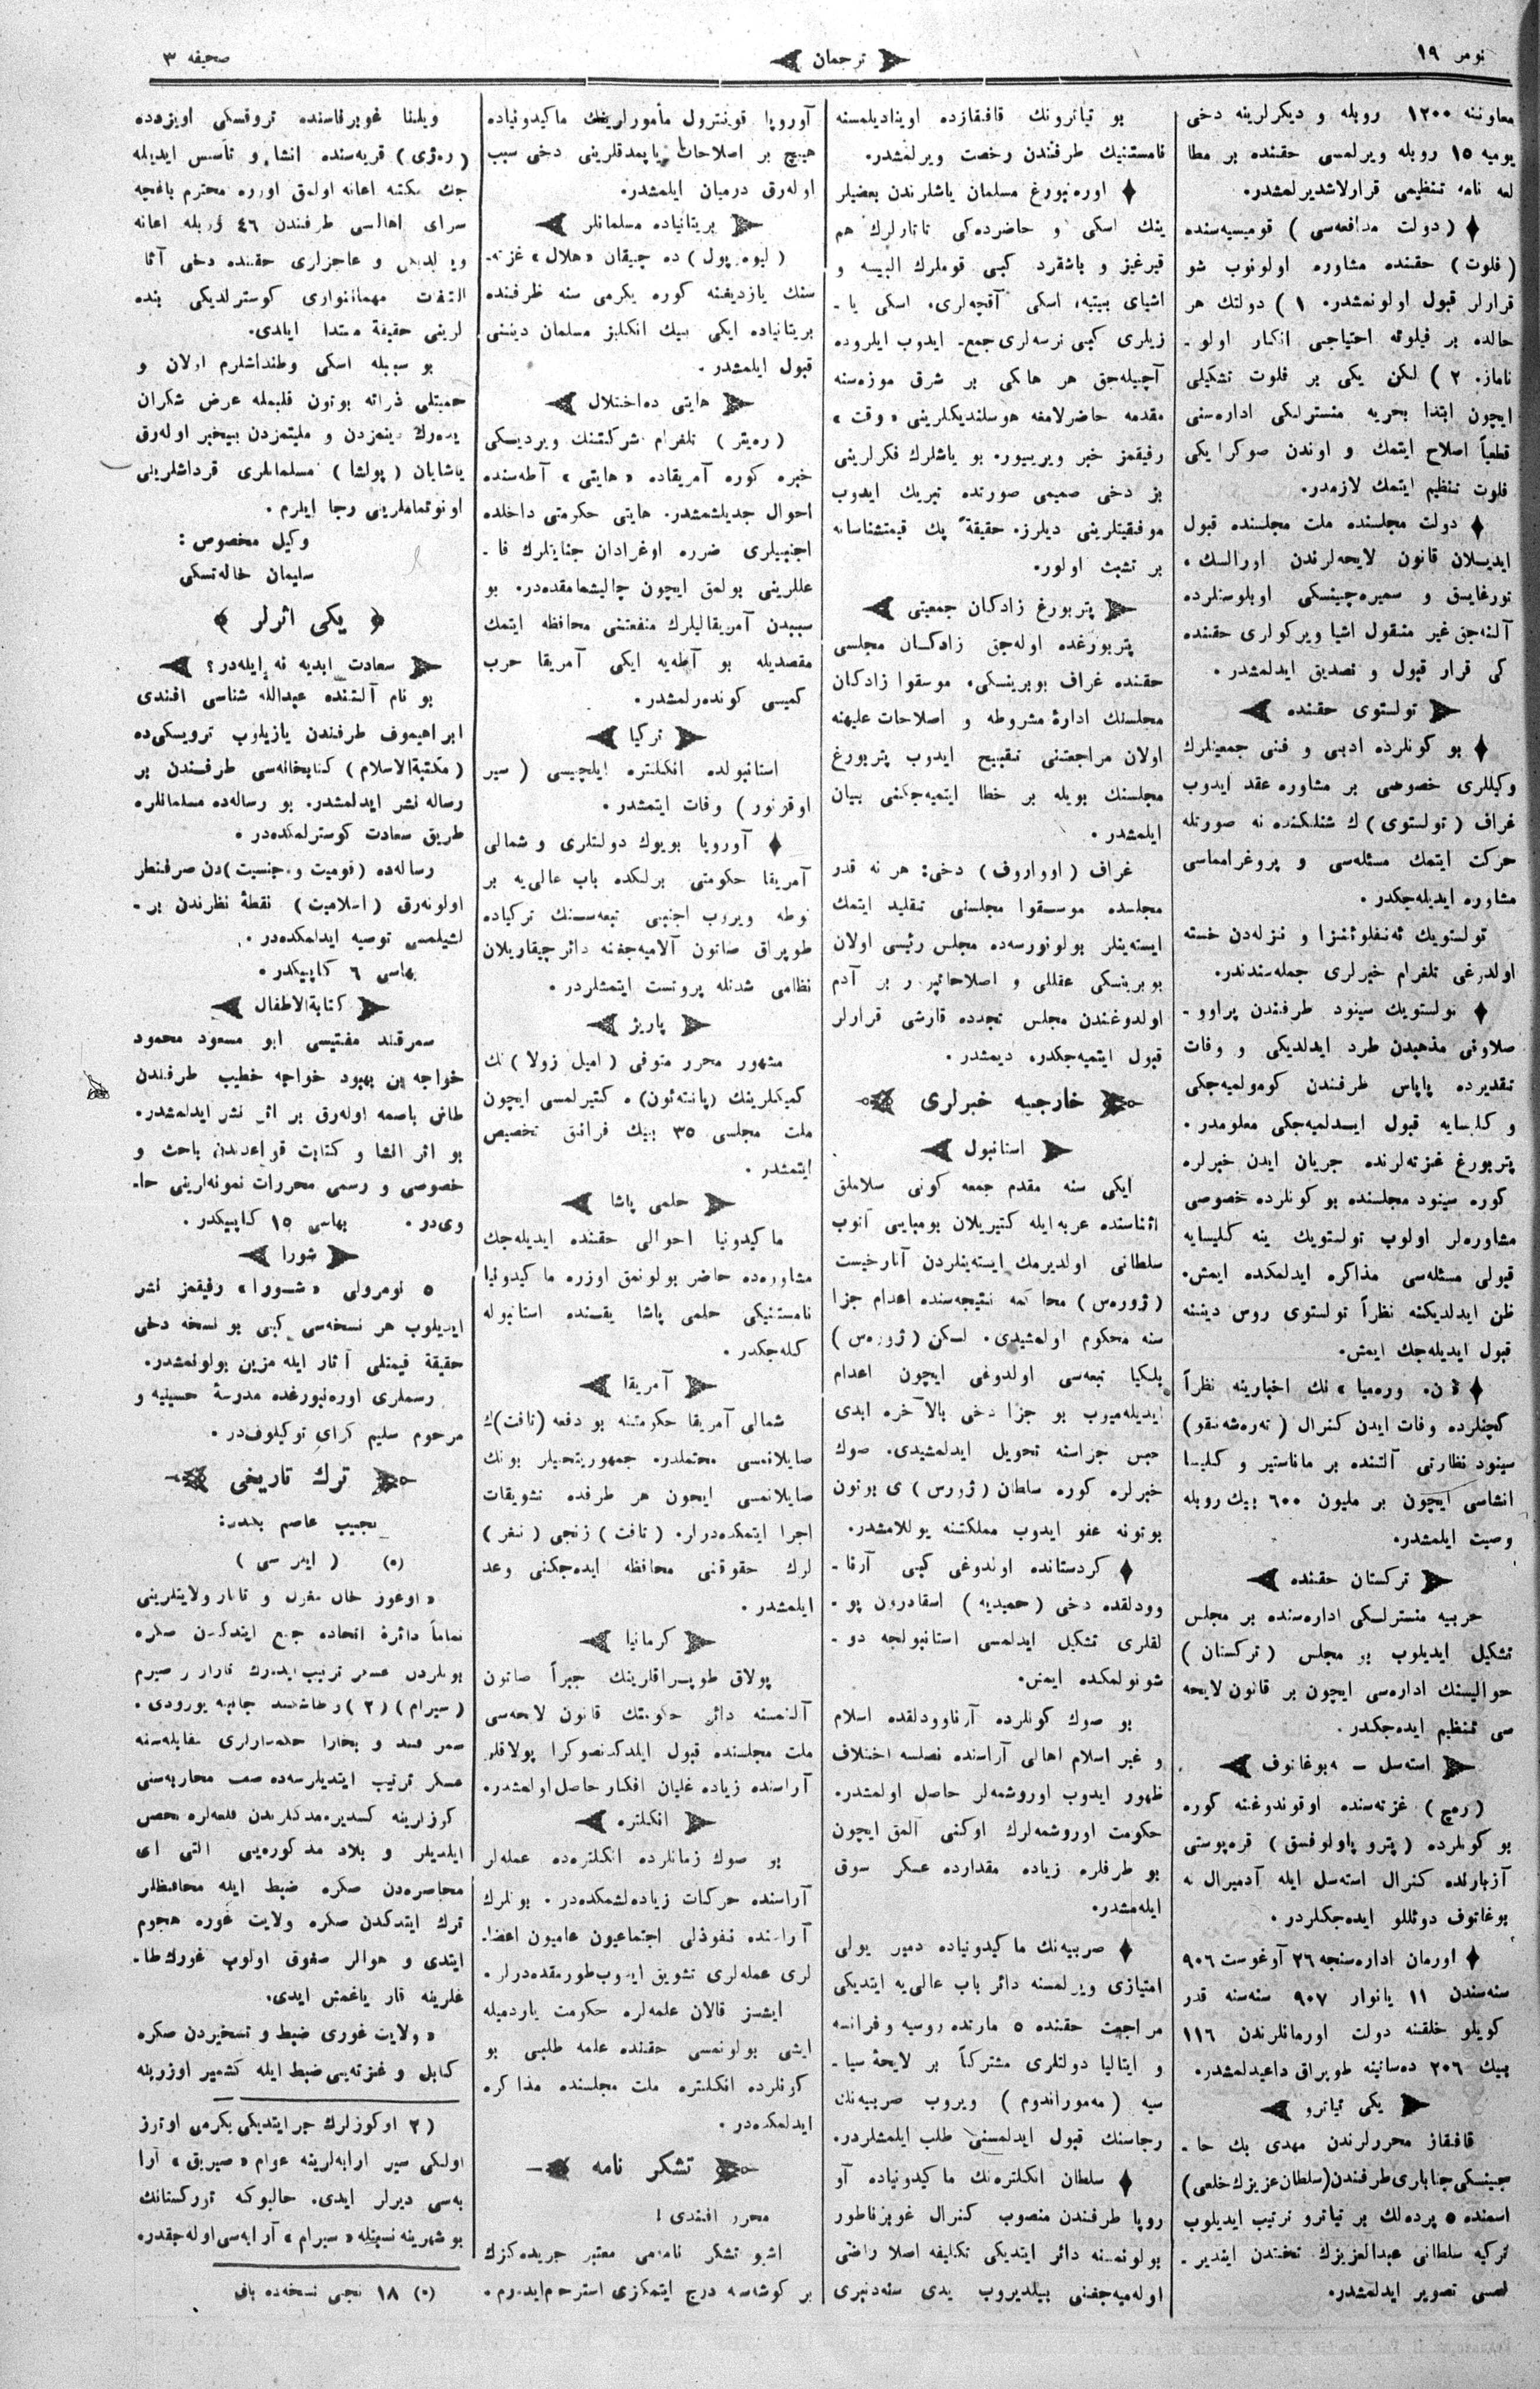 نومر ١٩
ترجمان
صحیفه ٣
معاوننه ١٢٠٠ روبله و دیكرلرینه دخی
یومیه ١٥ روبله ویرلمسی حقنده بر مطا
لعه نامه تنظیمی قرارلاشدیرلمشدر.
(دولت مدافعه‌سی) قومیسیه‌سنده
(فلوت) حقنده مشاوره اولونوب شو
قرارلر قبول اولونمشدر. ١) دولتك هر
حالده بر فیلوته احتیاجی انكار اولو-
ناماز. ٢) لكن یكی بر فلوت تشكیلی
ایچون ابتدا بحریه منسترلكی اداره‌سنی
قطعیاً اصلاح ایتمك و اوندن صوكرا یكی
فلوت تنظیم ایتمك لازمدر.
دولت مجلسنده ملت مجلسنده قبول
ایدیلان قانون لایحه‌لرندن اورالسك،
تورغایسق و سمیره‌چینسكی اوبلوستلرده
آلنه‌جق غیر منقول اشیا ویركولری حقنده
كی قرار قبول و تصدیق ایدلمشدر.
تولستوی حقنده
بو كونلرده ادبی و فنی جمعیتلرك
وكیللری خصوصی بر مشاوره عقد ایدوب
غراف (تولستوی) ك شنلكنده نه صورتله
حركت ایتمك مسئله‌سی و پروغرامماسی
مشاوره ایدیله‌جكدر.
تولستویك ئه‌نفلوئنزا و نزله‌دن خسته
اولدرغی تلغرام خبرلری جمله‌سندندر.
تولستویك سینود طرفندن پراوو-
صلاونی مذهبدن طرد ایدلدیكی و وفات
تقدیرده پاپاس طرفندن كومولمیه‌جكی
و كلیسایه قبول ایدلمیه‌جكی معلومدر.
پتربورغ غزته‌لرنده جریان ایدن خبرلره
كوره سینود مجلسنده بو كونلرده خصوصی
مشاوره‌لر اولوب تولستویك ینه كلیسایه
قبولی مسئله‌سی مذاكره ایدلمكده ایمش.
ظن ایدلدیكنه نظراً تولستوی روس دیننه
قبول ایدیله‌جك ایمش.
«ن. وره‌میا» نك اخبارینه نظراً
كچنلرده وفات ایدن كنرال (ته‌ره‌شه‌نقو)
سینود نظارتی آلتنده بر ماناستیر و كلیسا
انشاسی ایچون بر ملیون ٦٠٠ بیك روبله
وصیت ایلمشدر.
تركستان حقنده
حربیه منسترلكی اداره‌سنده بر مجلس
تشكیل ایدیلوب بو مجلس (تركستان)
حوالیسنك اداره‌سی ایچون بر قانون لایحه
سی تنظیم ایده‌جكدر.
استه‌سل - نه‌بوغاتوف
(ره‌چ) غزته‌سنده اوقوندوغنه كوره
بو كونلرده (پترو پاولوفسق) قره‌پوستی
آزبارنده كنرال استه‌سل ایله آدمیرال نه
بوغاتوف دوئللو ایده‌جكلردر.
اورمان اداره‌سنجه ٢٦ آوغوست ٩٠٦
سنه‌سندن ١١ یانوار ٩٠٧ سنه‌سنه قدر
كویلو خلقنه دولت اورمانلرندن ١١٦
بیك ٢٠٦ ده‌ساتینه طوپراق داغیدلمشدر.
یكی تیاترو
قافقاز محررلرندن مهدی بك حا-
جینسكی جنابلری طرفندن (سلطان عزیزك خلعی)
اسمنده ٥ پرده‌لك بر تیاترو ترتیب ایدیلوب
تركیه سلطانی عبدالعزیزك تختندن ایندیر-
لمسی تصویر ایدلمشدر.
بو تیاترونك قافقازده اوینادیلمسنه
نامستنیك طرفندن رخصت ویرلمشدر.
اوره‌نبورغ مسلمان یاشلرندن بعضیلر
ینك اسكی و حاضرده‌كی تاتارلرك هم
قیرغیز و باشقرد كبی قوملرك البیسه و
اشیای بیتیه، اسكی آقچه‌لری، اسكی یا-
زیلری كبی نرسه‌لری جمع ایدوب ایلروده
آچیله‌جق هر هانكی بر شرق موزه‌سنه
مقدمه حاضرلامغه هوسلندیكلرینی «وقت»
رفیقمز خبر ویرییور. بو یاشلرك فكرلرینی
بز دخی صمیمی صورتده تبریك ایدوب
موفقیتلرینی دیلرز. حقیقةً پك قیمتشناسانه
بر تشبث اولور.
پتربورغ زادكان جمعیتی
پتربورغده اوله‌جق زادكان مجلسی
حقنده غراف بوبرینسكی، موسقوا زادكان
مجلسنك ادارۀ مشروطه و اصلاحات علیهنه
اولان مراجعتنی تقبیح ایدوب پتربورغ
مجلسنك بویله بر خطا ایتمیه‌جكنی بیان
ایلمشدر.
غراف (اوواروف) دخی: هر نه قدر
مجلسده موسقوا مجلسنی تقلید ایتمك
ایسته‌ینلر بولونورسه‌ده مجلس رئیسی اولان
بوبرینسكی عقللی و اصلاحاتپرور بر آدم
اولدوغندن مجلس تجدده قارشی قرارلر
قبول ایتمیه‌جكدر، دیمشدر.
خارجیه خبرلری
استانبول
ایكی سنه مقدم جمعه كونی سلاملق
اثناسنده عربه ایله كتیریلان بومبایی آتوب
سلطانی اولدیرمك ایسته‌ینلردن آنارخیست
(ژوره‌س) محاكمه نتیجه‌سنده اعدام جزا
سنه محكوم اولمشیدی. لكن (ژوره‌س)
بلكیا تبعه‌سی اولدوغی ایچون اعدام
ایدیله‌میوب بو جزا دخی بالآخره ابدی
حبس جزاسنه تحویل ایدلمشیدی. صوك
خبرلره كوره سلطان (ژورس) ی بوتون
بوتونه عفو ایدوب مملكتنه یوللامشدر.
كردستانده اولدوغی كبی آرنا-
وودلقده دخی (حمیدیه) اسقادرون پو-
لقلری تشكیل ایدلمسی استانبولجه دو-
شونولمكده ایمش.
بو صوك كونلرده آرناوودلقده اسلام
و غیر اسلام اهالی آراسنده نصلسه اختلاف
ظهور ایدوب اوروشمه‌لر حاصل اولمشدر.
حكومت اوروشمه‌لرك اوكنی آلمق ایچون
بو طرفلره زیاده مقدارده عسكر سوق
ایله‌مشدر.
صربیه‌نك ماكیدونیاده دمیر یولی
امتیازی ویرلمسنه دائر باب عالی‌یه ایتدیكی
مراجعت حقنده ٥ مارتده روسیه و فرانسه
و ایتالیا دولتلری مشتركاً بر لایحۀ سیا-
سیه (مه‌موراندوم) ویروب صربیه‌نك
رجاسنك قبول ایدلمسنی طلب ایلمشلردر.
سلطان انكلتره‌نك ماكیدونیاده آو
روپا طرفندن منصوب كنرال غوبرناطور
بولونمسنه دائر ایتدیكی تكلیفه اصلا راضی
اوله‌میه‌جغنی بیلدیروب یدی سنه‌دنبری
آوروپا قونترول مأمورلرینك ماكیدونیاده
هیچ بر اصلاحات یاپمدقلرینی دخی سبب
اوله‌رق درمیان ایلمشدر.
بریتانیاده مسلمانلر
(لیوه‌رپول) ده چیقان «هلال» غزته-
سنك یازدیغنه كوره یكرمی سنه ظرفنده
بریتانیاده ایكی بیك انكلیز مسلمان دیننی
قبول ایلمشدر.
هایتی ده اختلال
(ره‌یتر) تلغرام شركتنك ویردیكی
خبره كوره آمریقاده «هایتی» آطه‌سنده
احوال جدیلشمشدر. هایتی حكومتی داخلده
اجنبیلری ضرره اوغرادان جنایتلرك فا-
عللرینی بولمق ایچون چالیشمامقده‌در. بو
سببدن آمریقالیلرك منفعتنی محافظه ایتمك
مقصدیله بو آطه‌یه ایكی آمریقا حرب
كمیسی كونده‌رلمشدر.
تركیا
استانبولده انكلتره ایلچیسی (سیر
اوقونور) وفات ایتمشدر.
آوروپا بویوك دولتلری و شمالی
آمریقا حكومتی برلكده باب عالی‌یه بر
نوطه ویروب اجنبی تبعه‌سنك تركیاده
طوپراق صاتون آلامیه‌جغنه دائر چیقاریلان
نظامی شدتله پروتست ایتمشلردر.
پاریز
مشهور محرر متوفی (امیل زولا) نك
كمیكلرینك (پانته‌ئون) ه كتیرلمسی ایچون
ملت مجلسی ٣٥ بیك فرانق تخصیص
ایتمشدر.
حلمی پاشا
ماكیدونیا احوالی حقنده ایدیله‌جك
مشاوره‌ده حاضر بولونمق اوزره ماكیدونیا
نامستنیكی حلمی پاشا یقینده استانبوله
كله‌جكدر.
آمریقا
شمالی آمریقا حكومتنه بو دفعه (تافت) ك
صایلانمسی محتملدر. جمهوریتجیلر بونك
صایلانمسی ایچون هر طرفده تشویقات
اجرا ایتمكده‌درلر. (تافت) زنجی (نغر)
لرك حقوقنی محافظه ایده‌جكنی وعد
ایلمشدر.
كرمانیا
پولاق طوپراقلرینك جبراً صاتون
آلنمسنه دائر حكومتك قانون لایحه‌سی
ملت مجلسنده قبول ایلدكدنصوكرا پولاقلر
آراسنده زیاده غلیان افكار حاصل اولمشدر.
انكلتره
بو صوك زمانلرده انكلتره‌ده عمله‌لر
آراسنده حركات زیاده‌لشمكده‌در. بونلرك
آراسنده نفوذلی اجتماعیون عامیون اعضا-
لری عمله‌لری تشویق ایدوب طورمقده‌درلر.
ایشسز قالان علمه‌لره حكومت یاردمیله
ایشی بولونمسی حقنده علمه طلبی بو
كونلرده انكلتره ملت مجلسنده مذاكره
ایدلمكده‌در.
تشكر نامه
محرر افندی!
اشبو تشكر نامه‌می معتبر جریده‌كزك
بر كوشه‌سه درج ایتمكزی استرحام ایدرم.
ویلنا غوبرناسنده تروقسكی اویزدده
(ره‌ژی) قریه‌سنده انشا و تأسس ایدیله
جك مكتبه اعانه اولمق اوزره محترم باغچه
سرای اهالسی طرفندن ٤٦ روبله اعانه
ویرلدیكی و عاجزلری حقنده دخی آثا
التفات مهماننوازی كوسترلدیكی بنده
لرینی حقیقة مبتدا ایلدی.
بو سببله اسكی وطنداشلرم اولان و
حمیتلی ذراته بوتون قلبمله عرض شكران
ایده‌رك دینمزدن و ملیتمزدن بیخبر اوله‌رق
یاشایان (پولشا) مسلمانلری قرداشلرینی
اونوتماملرینی رجا ایلرم.
وكیل مخصوص:
سلیمان خاله‌تسكی
یكی اثرلر
سعادت ابدیه نه ایله‌در؟
بو نام آلتنده عبدالله شناسی افندی
ابراهیموف طرفندن یازیلوب ترویسكی‌ده
(مكتبةالاسلام) كتابخانه‌سی طرفندن بر
رساله نشر ایدلمشدر. بو رساله‌ده مسلمانلره
طریق سعادت كوسترلمكده‌در.
رساله‌ده (قومیت و جنسیت) دن صرفنظر
اولونه‌رق (اسلامیت) نقطۀ نظرندن بر-
لشیلمسی توصیه ایدلمكده‌در.
بهاسی ٦ كاپیكدر.
كتابةالاطفال
سمرقند مفتیسی ابو مسعود محمود
خواجه بن بهبود خواجه خطیب طرفندن
طاش باصمه اوله‌رق بر اثر نشر ایدلمشدر.
بو اثر انشا و كتابت قواعدندن باحث و
خصوصی و رسمی محررات نمونه‌لرینی حا-
وی‌در. بهاسی ١٥ كاپیكدر.
شورا
٥ نومرولی «شورا» رفیقمز نشر
ایدیلوب هر نسخه‌سی كبی بو نسخه دخی
حقیقة قیمتلی آثار ایله مزین بولونمشدر.
رسملری اوره‌نبورغده مدرسۀ حسینیه و
مرحوم سلیم كرای توكیلوف‌در.
ترك تاریخی
نجیب عاصم بكدن:
(٥) (ایدر سی)
«اوغوز خان مغول و تاتار ولایتلرینی
تماماً دائرۀ اتحاده جمع ایتدكدن صكره
بونلردن عسكر ترتیب ایدرك تارار و صیرم
(سیرام) (٢) و طاشكند جانبنه یورودی.
سمرقند و بخارا حكمدارلری مقابله‌سنه
عسكر ترتیب ایتدیلرسه‌ده صف محاربه‌سنی
كوزلرینه كسدیره‌مدكلرندن قلعه‌لره تحصن
ایلدیلر و بلاد مذكوره‌یی التی ای
محاصره‌دن صكره ضبط ایله محافظلر
ترك ایتدكدن صكره ولایت غوره هجوم
ایتدی و هوالر صغوق اولوب غورك طا-
غلرینه قار یاغمش ایدی.
«ولایت غوری ضبط و تسخیردن صكره
كابل و غزنه‌یی ضبط ایله كشمیر اوزرینه
(٢ اوكوزلرك جر ایتدیكی یكرمی اوتوز
اولكی سیر ارابه‌لرینه عوام «صیریق» آرا
به‌سی دیرلر ایدی. حالبوكه توركستانك
بو شهرینه نسبتله «سیرام» آرابه‌سی اوله‌جقدر.
(٥) ١٨ نجی نسخه‌ده باق